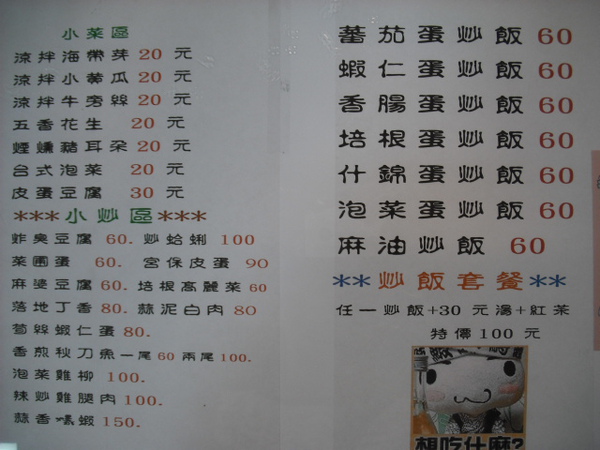 小菜區
涼拌海帶芽 20 元
涼拌小黃瓜 20 元
涼拌牛旁絲 20 元
五香花生 20 元
煙燻豬耳朵 20 元
台式泡菜 20 元
皮蛋豆腐 30 元
***小炒區***
炸臭豆腐 60. 炒蛤蜊 100
菜圃蛋 60. 宮保皮蛋 90
麻婆豆腐 60. 培根高麗菜 60
落地丁香 80. 蒜泥白肉 80
筍絲蝦仁蛋 80.
香煎秋刀魚一尾 60 兩尾 100.
泡菜雞柳 100.
辣炒雞腿肉 100.
蒜香嗆蝦 150.
蕃茄蛋炒飯 60
蝦仁蛋炒飯 60
香腸蛋炒飯 60
培根蛋炒飯 60
什錦蛋炒飯 60
泡菜蛋炒飯 60
麻油炒飯 60
**炒飯套餐**
任一炒飯+30 元湯+紅茶
特價 100 元
想吃什麻?